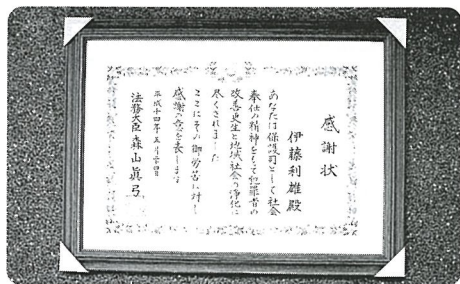 感謝状
伊藤利雄殿
あなたは保護司として社会
奉仕の精神をもつて犯罪者の
改善更生と地域社会の浄化に
尽くされました
ここにその御労苦に対し
感謝の意を表します
平成十四年五月
法務大臣森山眞弓